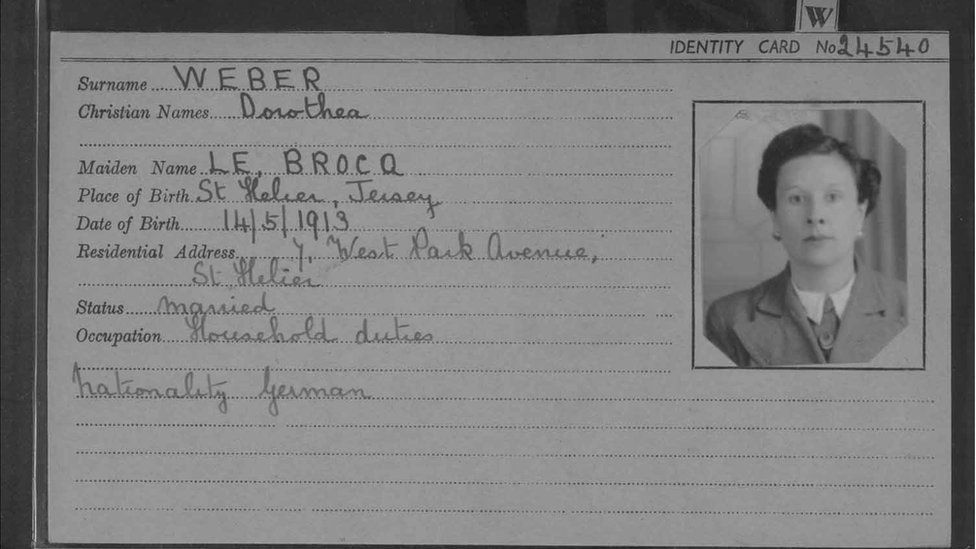 W
IDENTITY CARD No 24540
Surname WEBER
Christian Names Dorothea
Maiden Name LE, BROCQ
Place of Birth St Helier, Jersey
Date of Birth 14/5/1913
Residential Address 7, West Park Avenue,
St Helier
Status married
Occupation Household duties
Nationality German